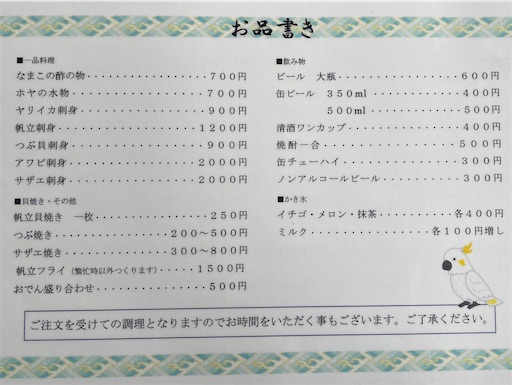 お品書き
■一品料理
なまこの酢の物・・・・・・・・・・・・・７００円
ホヤの水物・・・・・・・・・・・・・・・７００円
ヤリイカ刺身・・・・・・・・・・・・・・９００円
帆立刺身・・・・・・・・・・・・・・・１２００円
つぶ貝刺身・・・・・・・・・・・・・・・９００円
アワビ刺身・・・・・・・・・・・・・・２０００円
サザエ刺身・・・・・・・・・・・・・・２０００円
■貝焼き・その他
帆立貝焼き　一枚・・・・・・・・・・・・２５０円
つぶ焼き・・・・・・・・・・・２００～５００円
サザエ焼き・・・・・・・・・・３００～８００円
帆立フライ（繁忙時以外つくります）・・・・１５００円
おでん盛り合わせ・・・・・・・・・・・・５００円
■飲み物
ビール　大瓶・・・・・・・・・・・・・６００円
缶ビール　３５０ml・・・・・・・・・・４００円
５００ml・・・・・・・・・・５００円
清酒ワンカップ・・・・・・・・・・・・４００円
焼酎一合・・・・・・・・・・・・・・・５００円
缶チューハイ・・・・・・・・・・・・・３００円
ノンアルコールビール・・・・・・・・・３００円
■かき氷
イチゴ・メロン・抹茶・・・・・・・・各４００円
ミルク・・・・・・・・・・・・・各１００円増し
ご注文を受けての調理となりますのでお時間をいただく事もございます。ご了承ください。